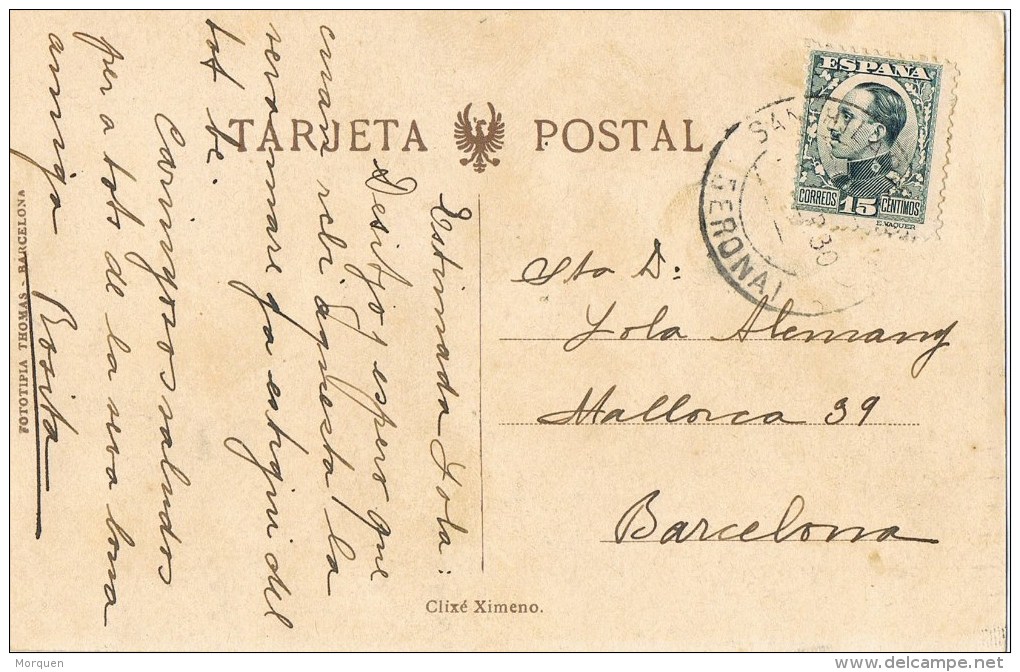 TARJETA POSTAL
ESPAÑA
CORREOS 15 CÉNTIMOS
E. VAQUER
(GERONA)
30
Estimada Lola:
Desitjo y espero que
cuan rebi aquesta la
seva mare ja estigui del
tot bé.
Carinyosos saludos
per a tots de la seva bona
amiga Rosita
Sta D:
Lola Alemany
Mallorca 39
Barcelona
FOTOTIPIA THOMAS - BARCELONA
Clixé Ximeno.
Morquen
www.delcampe.net